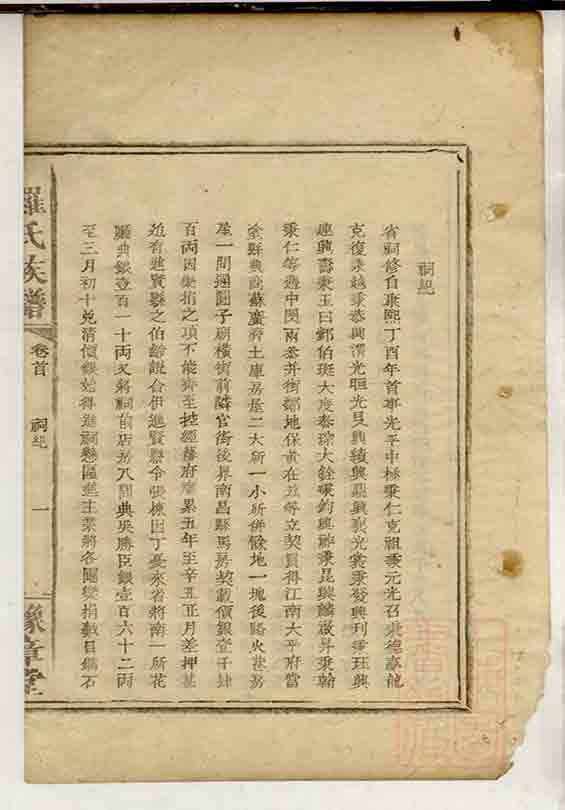 祠紀
省祠修自康熙丁酉年首事光平中極秉仁克祖秉元光召秉德嘉能
克復秉越秉恭興渭光晅光旻興績興聖興聚光裳秉發興刊秉珏興
進興書秉玉曰鄴伯斑大度泰琮大銓秉鈞興神秉昆興麟啟昇秉翰
秉仁等適中閔兩叅并街鄰地保黃在茲等立契買得江南太平府當
塗縣典商蘇廣濟土庫房屋二大所一小所併餘地一塊後路火巷房
屋一間通園子硐橫街前隣官街後界南昌縣馬房契載價銀壹千肆
百兩因樂捐之項不能齊至控經藩府摩累五年至辛丑正月差押甚
迫有進賢縣之伯齡說合伊進賢縣令張棟因丁憂來省將南一所花
廳典銀壹百一十兩又將祠前店房八間典吳勝臣銀壹百六十二兩
至三月初十兌清價銀始得進祠懸匾進主業將各團變捐數目鐫石
羅氏族譜
卷首
祠紀
一
豫章堂